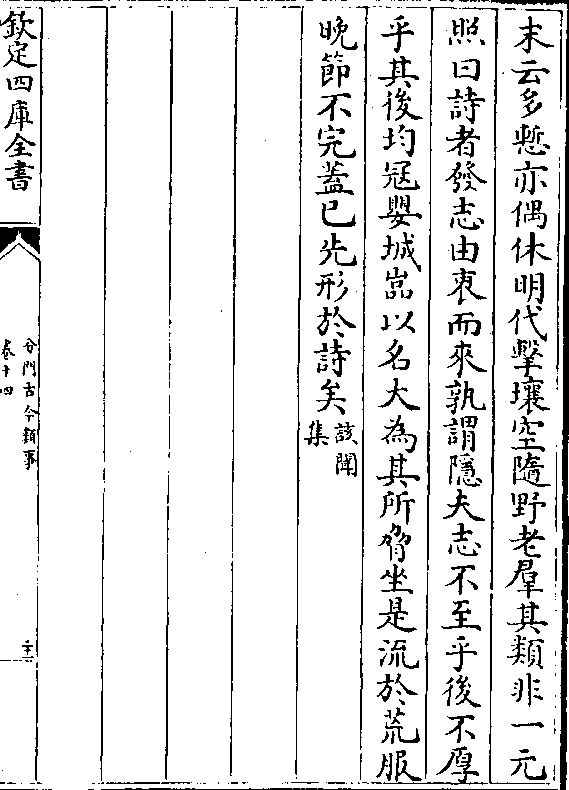 末云多慙亦偶休明代擊壤空隨野老羣其類非一元
照曰詩者發志由衷而來孰謂隱夫志不至乎後不厚
乎其後均冦嬰城嵓以名大為其所脅坐是流於荒服
晚節不完蓋已先形於詩矣該聞集
欽定四庫全書
分門古今類事
卷十四